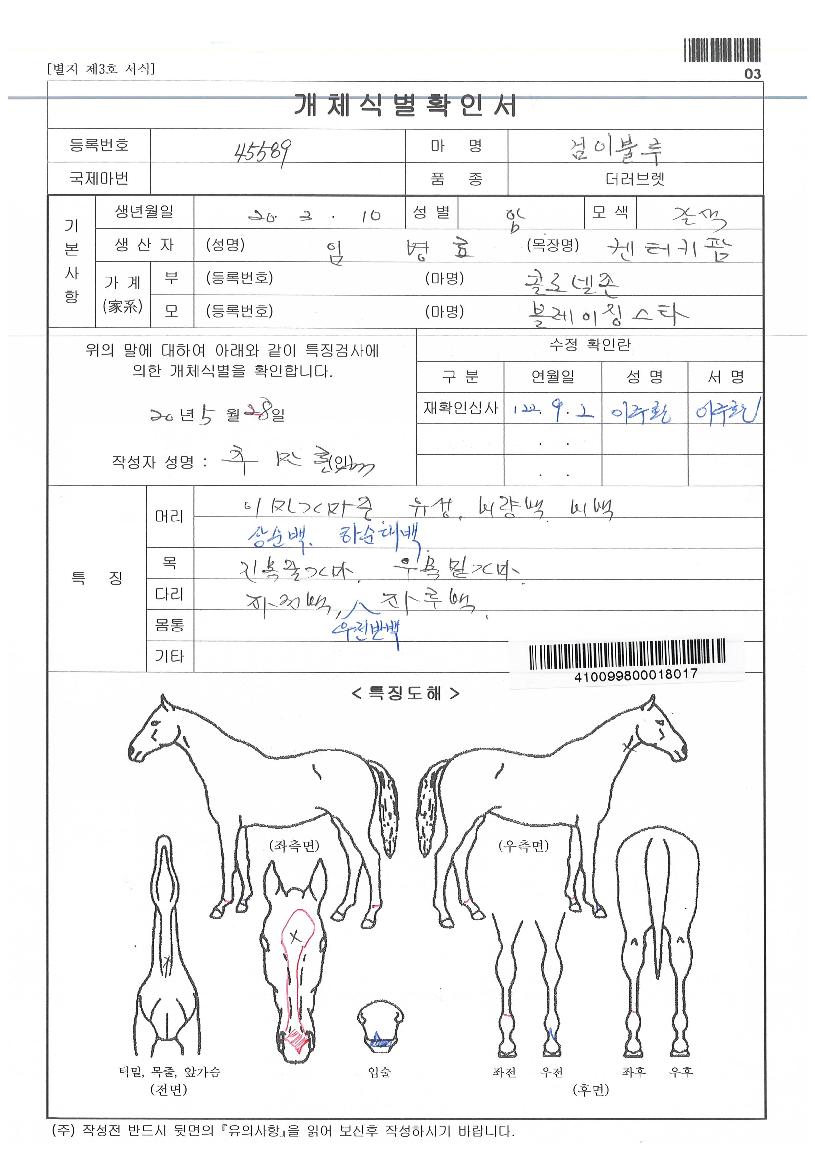 [별지 제3호 서식]
03
개체식별확인서
등록번호 45589 마 명 검이불루
국제마번 품 종 더러브렛
기본사항
생년월일 20. 3. 10 성별 암 모색 갈색
생산자 (성명) 임병효 (목장명) 켄터키팜
가계 (家系) 부 (등록번호) (마명) 콜로넬존
모 (등록번호) (마명) 블레이징스타
위의 말에 대하여 아래와 같이 특징검사에
의한 개체식별을 확인합니다.
20년 5월 28일
작성자 성명 : (인)
수정 확인란
구분 연월일 성명 서명
재확인심사 '22. 9. 2 이주환 이주환
. .
. .
특 징
머리 유성, 비량백 비백
상순백. 하순대백
목
다리
우전반백
몸통
기타
410099800018017
< 특징도해 >
(좌측면) (우측면)
턱밑, 목줄, 앞가슴
(전면)
입술
좌전 우전 좌후 우후
(후면)
(주) 작성전 반드시 뒷면의 『유의사항』을 읽어 보신후 작성하시기 바랍니다.